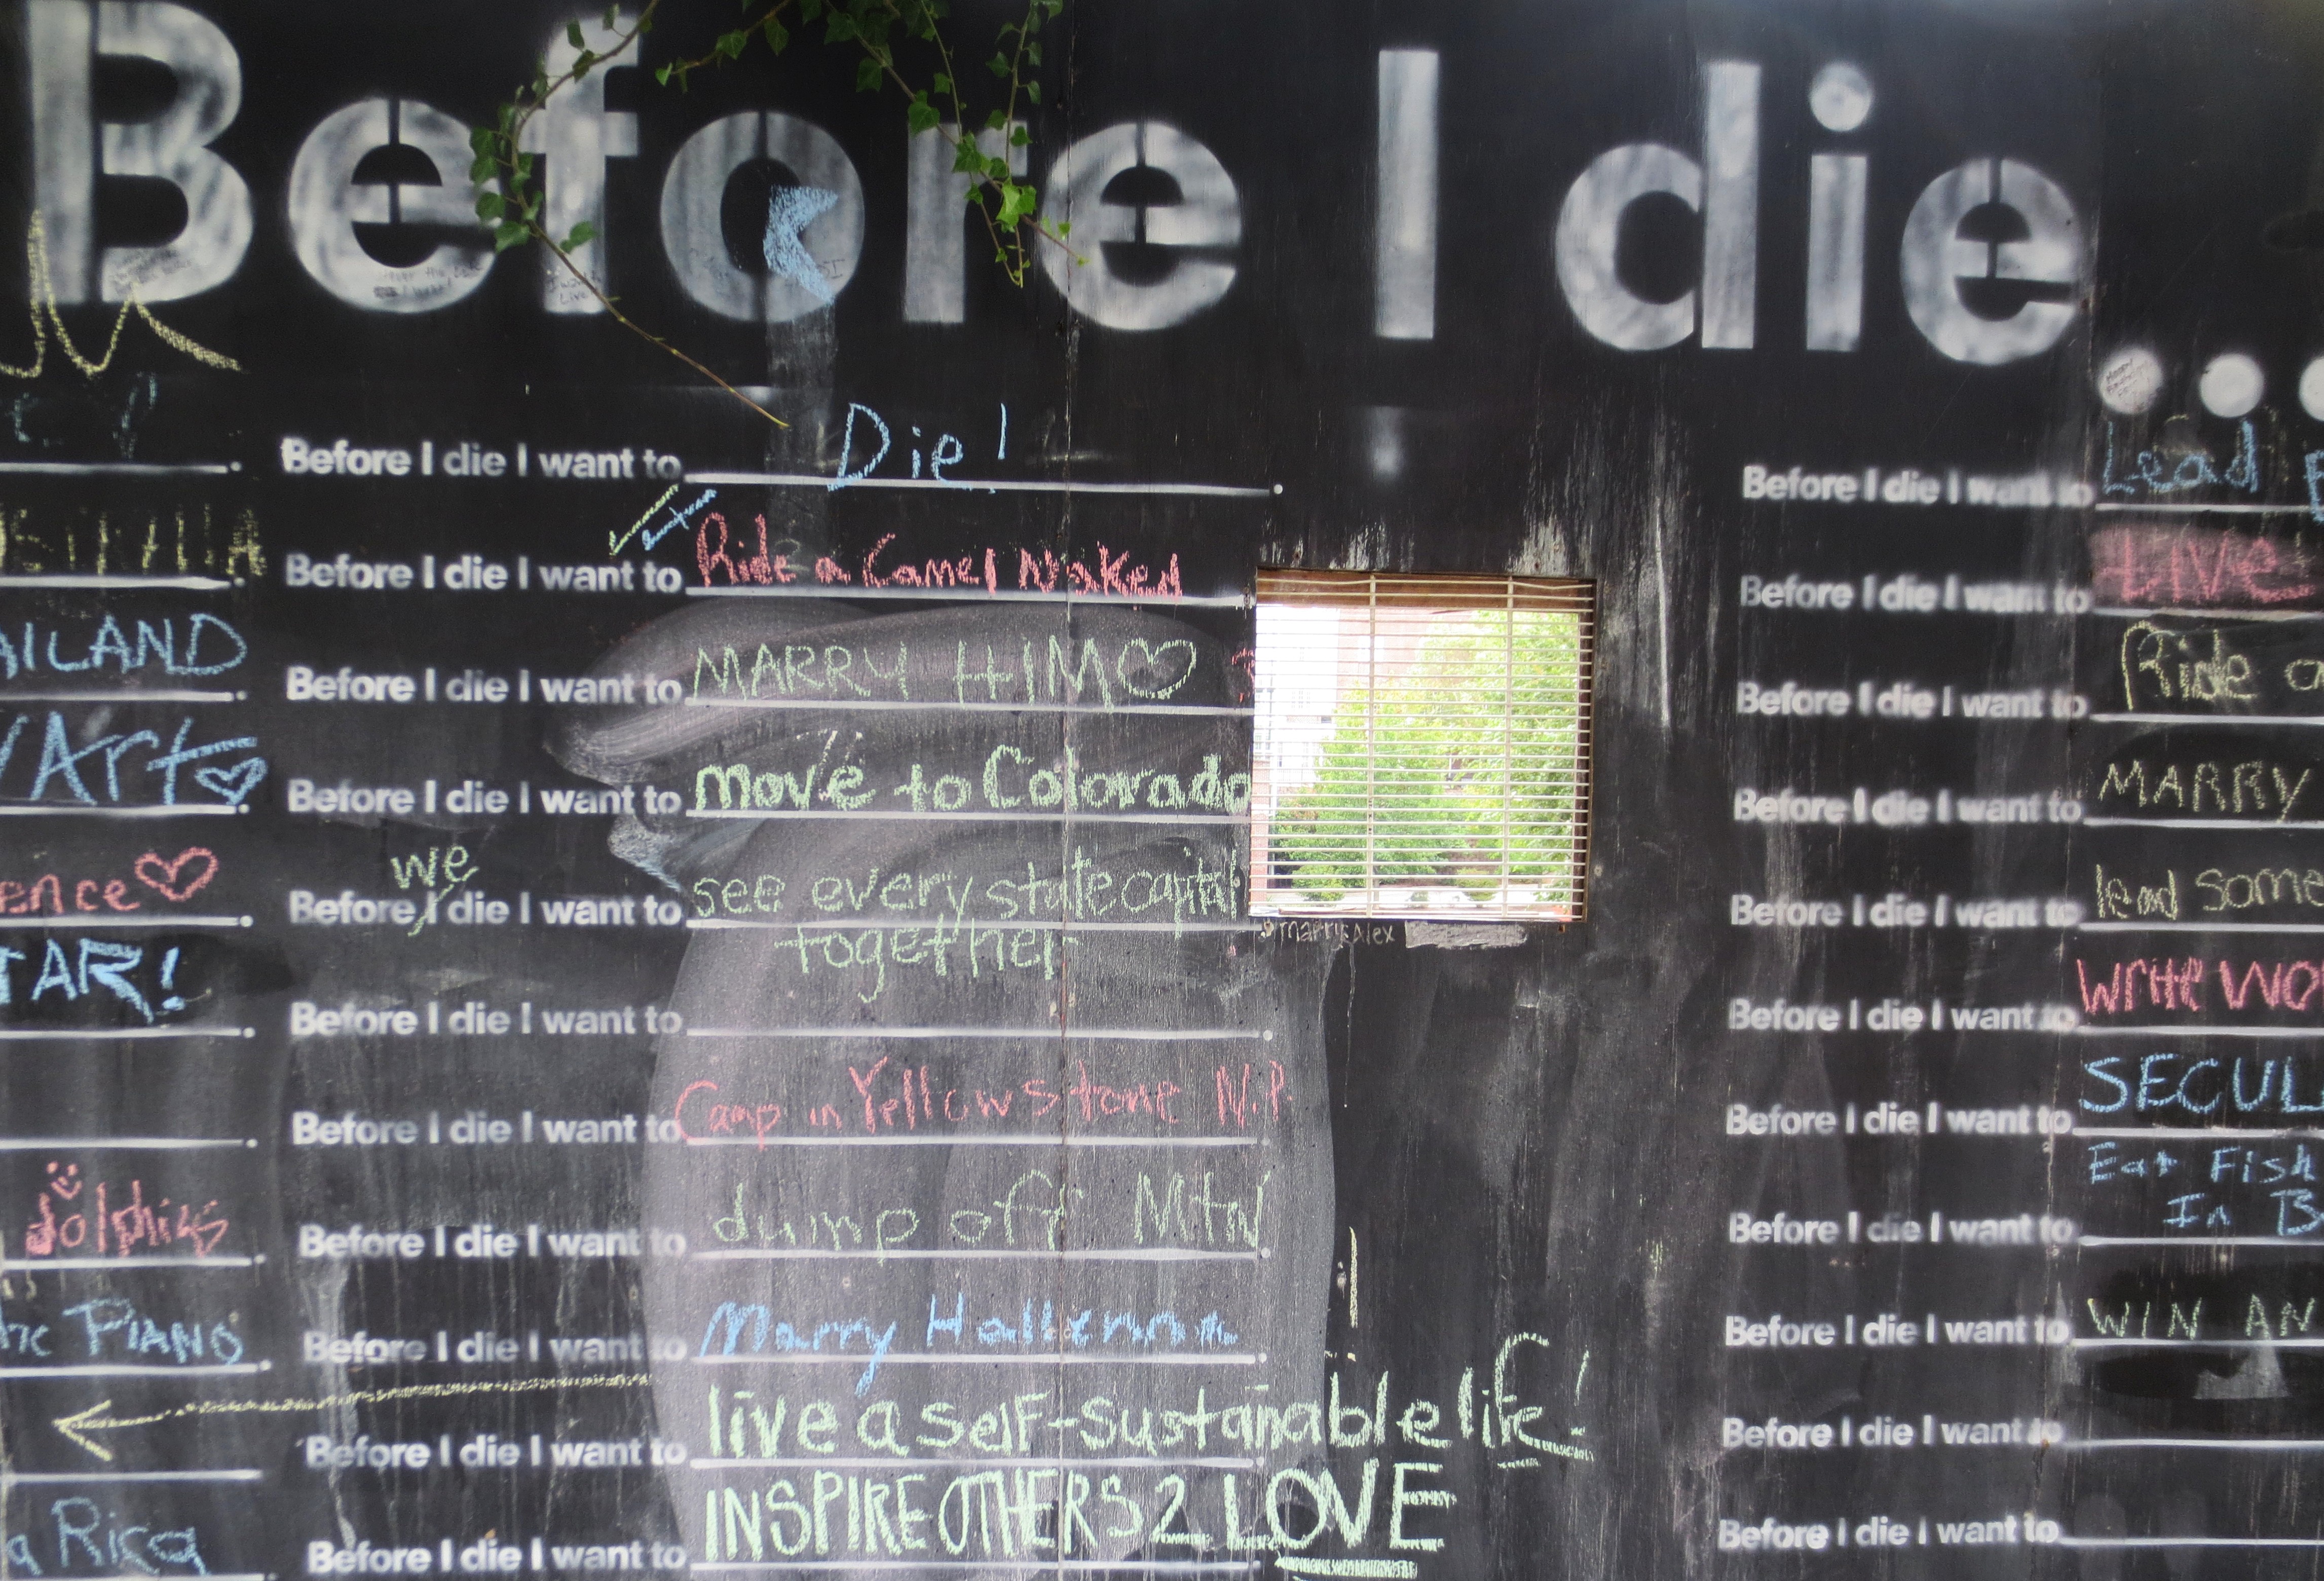 Before I die...
Before I die I want to Die!
Before I die I want to Ride a Camel Naked
Before I die I want to MARRY HIM
Before I die I want to move to Colorado
we
Before I die I want to see every state capital
together
Before I die I want to
Before I die I want to Camp in Yellowstone N.P.
Before I die I want to dump off MtN
Before I die I want to Marry
Before I die I want to live a self-sustainable life!
Before I die I want to INSPIRE OTHERS 2 LOVE
marry Alex
AILAND
Art
ence
TAR!
dolphins
PIANO
a Rica
Before I die I want to Lead
Before I die I want to LIVE
Before I die I want to Ride a
Before I die I want to MARRY
Before I die I want to lead some
Before I die I want to write wo
Before I die I want to SECUL
Eat Fish
Before I die I want to In B
Before I die I want to WIN AN
Before I die I want to
Before I die I want to